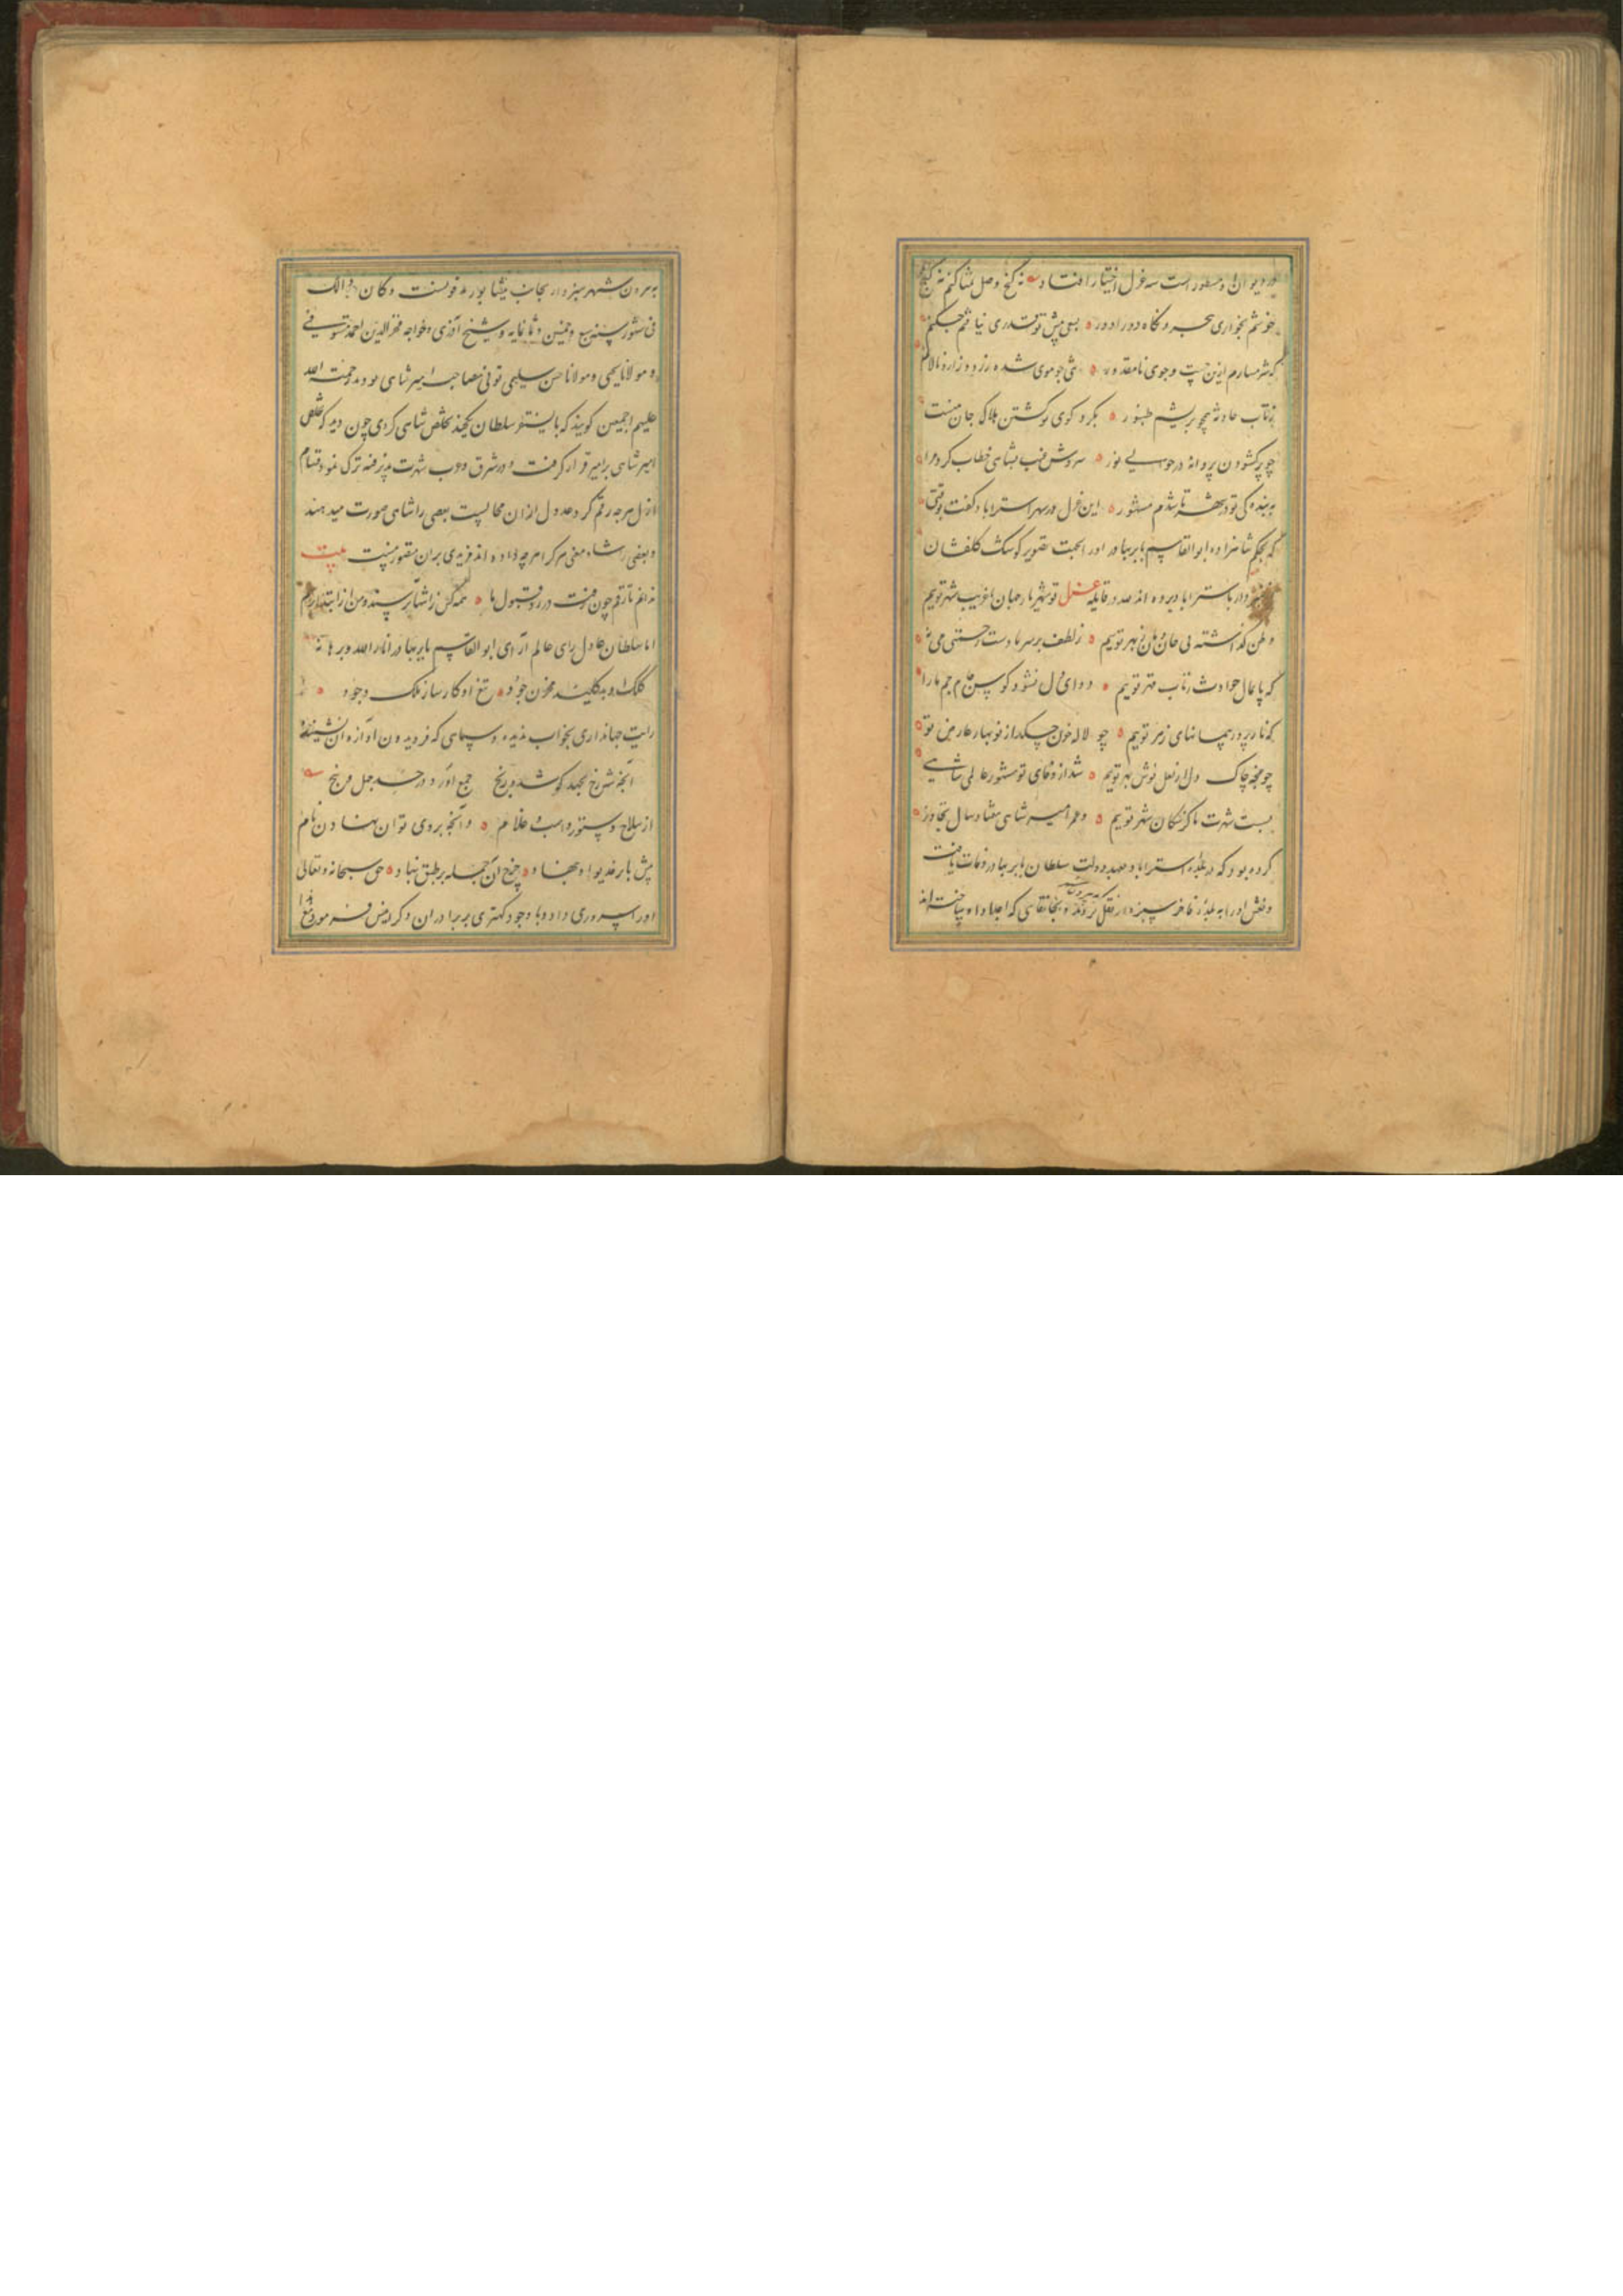 در دیوان او مسطور است سه غزل اختیار افتاد نه گنج وصل تمنا کنم نه گنج
خوشم بخواری هجر و نگاه دورادور بسعی پیش تو قدری نیافتم چکنم
که شرمسارم ازین جست و جوی نامقدور تنی چو موی شده زرد و زار و نالانم
ز تاب حادثه همچو بریشم طنبور بگرد کوی تو گشتن هلاک جان منست
چو پر گشودن پروانه در حوالی نور سروش غیب بشاهی خطاب کرد مرا
به بندگی تو در شهر تا شدم مشهور این غزل در شهر استراباد گفت بوقتی
که بحکم شاهزاده ابوالقاسم بابر بهادر او را بجهت تصویر کوشک گلفشان
باستراباد برده اند لله در قایله غزل تو شهریار جهان ما غریب شهر توییم
وطن گذاشته بی خان و مان ز بهر توییم ز لطف بر سر ما دست رحمتی می نه
که پایمال حوادث ز تاب قهر توییم دوای دل نشود کوس جام جم ما را
که ناز پرور پیمانهای زهر توییم چو لاله خون چکد از نوبهار عارض تو
چو غنچه چاک دل از لعل نوش بهر توییم شد از وفای تو مشهور عالمی شاهی
بست شهرت ما کز سگان شهر توییم و عمر امیر شاهی از هفتاد سال تجاوز
کرده بود که در بلده استراباد بعهد دولت سلطان بابر بهادر وفات یافت
و نعش او را به بلده فاخره سبزوار نقل کردند و بخانقاهی که اجداد او ساخته اند
به بیرون شهر سبزوار بجانب نیشابور مدفونست و کان ذالک
فی شهور سنه سبع و خمسین و ثمانمایه و شیخ آذری و خواجه فخرالدین اوحد مستوفی
و مولانا یحیی و مولانا حسن سلیمی تونی مصاحب امیر شاهی بودند رحمة الله
علیهم اجمعین گویند که بایسنقر سلطان یکچند تخلص شاهی کردی چون دید که تخلص
امیر شاهی بر امیر قرار گرفت و در شرق و غرب شهرت پذیرفته ترک نمود قسام
ازل هرچه رقم کرد عدول از آن محالیست بعضی را شاهی صورت میدهند
و بعضی را شاه معنی هر کرا هرچه داده اند مزیدی بران متصور نیست بیت
ندانم تا رقم چون رفت در رد و قبول ما همه کس ز انتها ترسند و من از ابتدا ترسم
اما سلطان عادل رای عالم آرای ابوالقاسم بابر بهادر انار الله برهانه
کلک او بد کلید مخزن جود تیغ او کارساز ملک وجود
رایت جهانداری بخواب ندیده و سپاهی که فریدون آوازه آن نشنیده
آنچه شهرخ بجهد کوشد و رنج جمع آورد در چهل و پنج
از سلاح و ستور و اسب و غلام و آنچه بر وی توان نهادن نام
پیش بابر خدیو او بنهاد چرخ آن جمله بر طبق بنهاد حق سبحانه و تعالی
او را سروری داد و با وجود کهتری بر برادران دگر امیرش فرمود